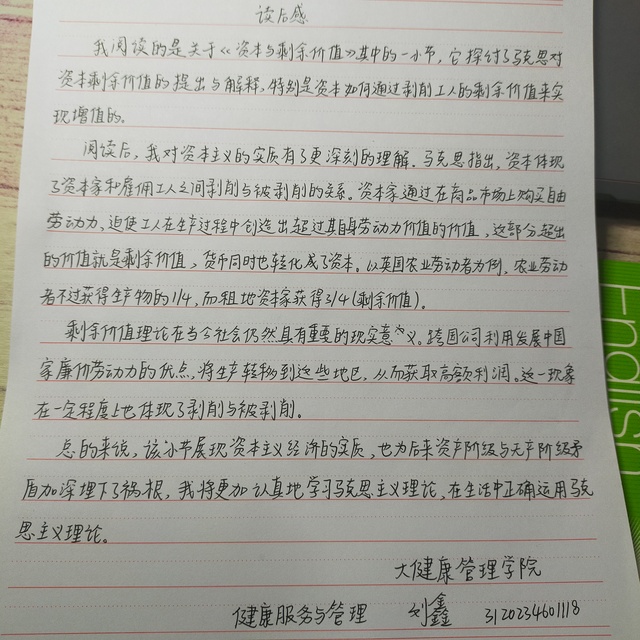 读后感
我阅读的是关于《资本与剩余价值》其中的一小节,它探讨了马克思对
资本剩余价值的提出与解释,特别是资本如何通过剥削工人的剩余价值来实
现增值的。
阅读后,我对资本主义的实质有了更深刻的理解。马克思指出,资本体现
了资本家和雇佣工人之间剥削与被剥削的关系。资本家通过在商品市场上购买自由
劳动力,迫使工人在生产过程中创造出超过其自身劳动力价值的价值,这部分超出
的价值就是剩余价值,货币同时也转化成了资本。以英国农业劳动者为例,农业劳动
者不过获得生产物的1/4,而租地资本家获得3/4(剩余价值)。
剩余价值理论在当今社会仍然具有重要的现实意义。跨国公司利用发展中国
家廉价劳动力的优点,将生产转移到这些地区,从而获取高额利润。这一现象
在一定程度上也体现了剥削与被剥削。
总的来说,该小节展现资本主义经济的实质,也为后来资产阶级与无产阶级矛
盾加深埋下了祸根,我将更加认真地学习马克思主义理论,在生活中正确运用马克
思主义理论。
大健康管理学院
健康服务与管理 刘鑫 3120234601118
English